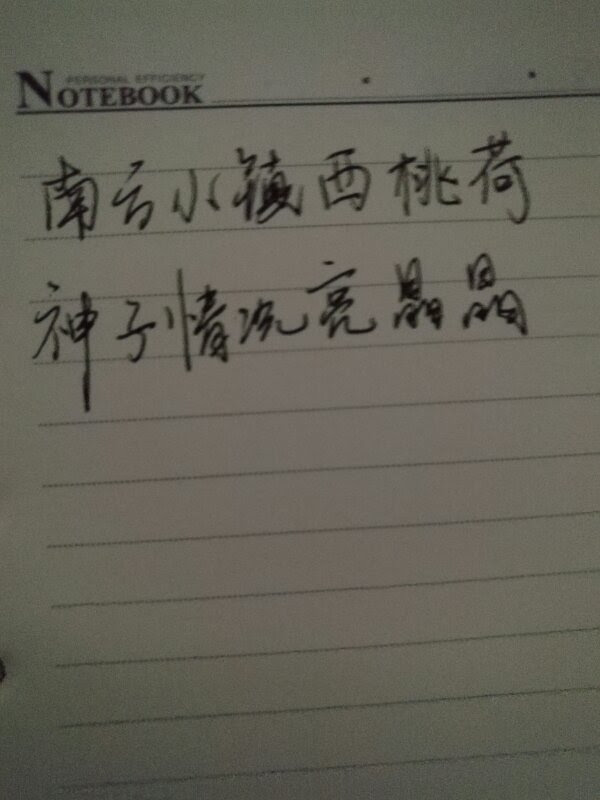 PERSONAL EFFICIENCY
NOTEBOOK
南云小镇西桃荷
神子情况亮晶晶